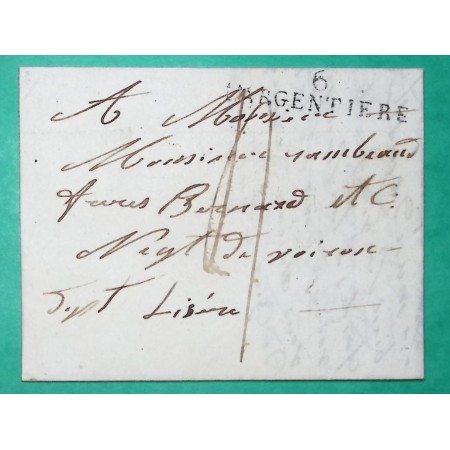 6
L'ARGENTIERE
A Monsieur
Monsieur rambeaud
frères Bernard et C.
Negt de voiron
Dept Lisére